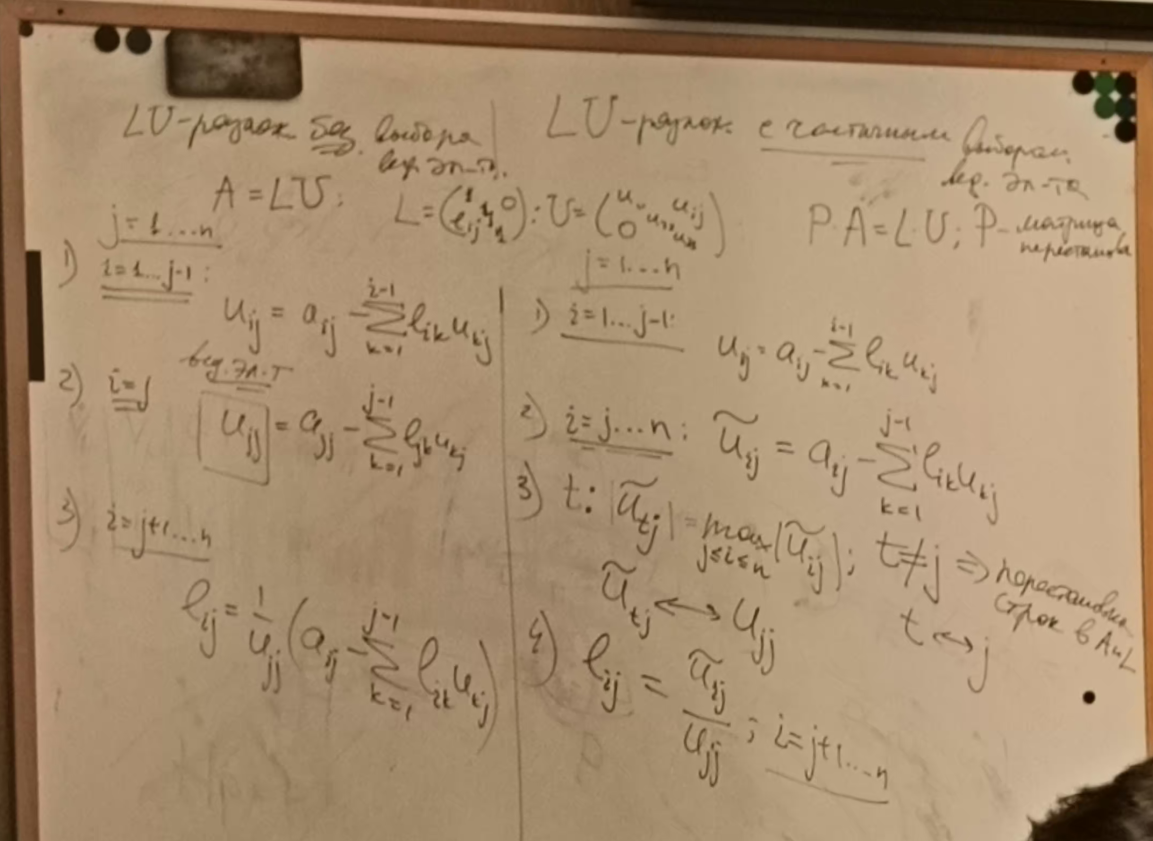 LU-разлож. без выбора
вед. эл-та.
A = LU; L = (1 0 l_ij 1 1); U = (u u_ij 0 u_nn)
j = 1...n
1) i = 1...j-1:
u_ij = a_ij - Σ_{k=1}^{i-1} l_ik u_kj
вед. эл-т
2) i = j
u_jj = a_jj - Σ_{k=1}^{j-1} l_jk u_kj
3) i = j+1...n
l_ij = 1/u_jj (a_ij - Σ_{k=1}^{j-1} l_ik u_kj)
LU-разлож. с частичным выбором
вед. эл-та
P·A = L·U; P - матрица
перестановк
j = 1...n
1) i = 1...j-1:
u_ij = a_ij - Σ_{k=1}^{i-1} l_ik u_kj
2) i = j...n: ũ_ij = a_ij - Σ_{k=1}^{j-1} l_ik u_kj
3) t: |ũ_tj| = max_{j≤i≤n} |ũ_ij|; t ≠ j ⇒ перестановка
строк в A и L
ũ_tj ↔ u_jj t ↔ j
4) l_ij = ũ_ij / u_jj; i = j+1...n